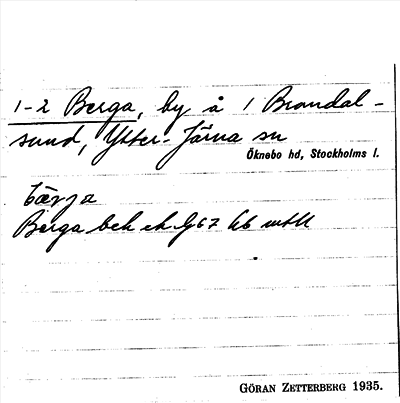 1-2 Berga, by å 1 Brandal-
sund, Ytter-Järna sn
Öknebo hd, Stockholms l.
bærja
Berga bek ek G67 Ab
GÖRAN ZETTERBERG 1935.